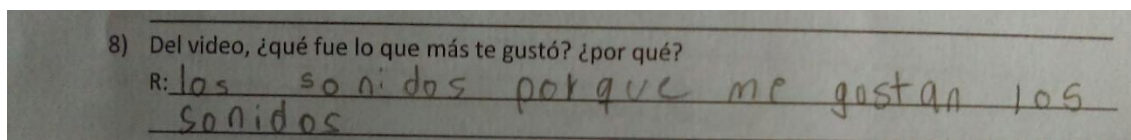 8) Del video, ¿qué fue lo que más te gustó? ¿por qué?
R: los sonidos porque me gostan los
sonidos